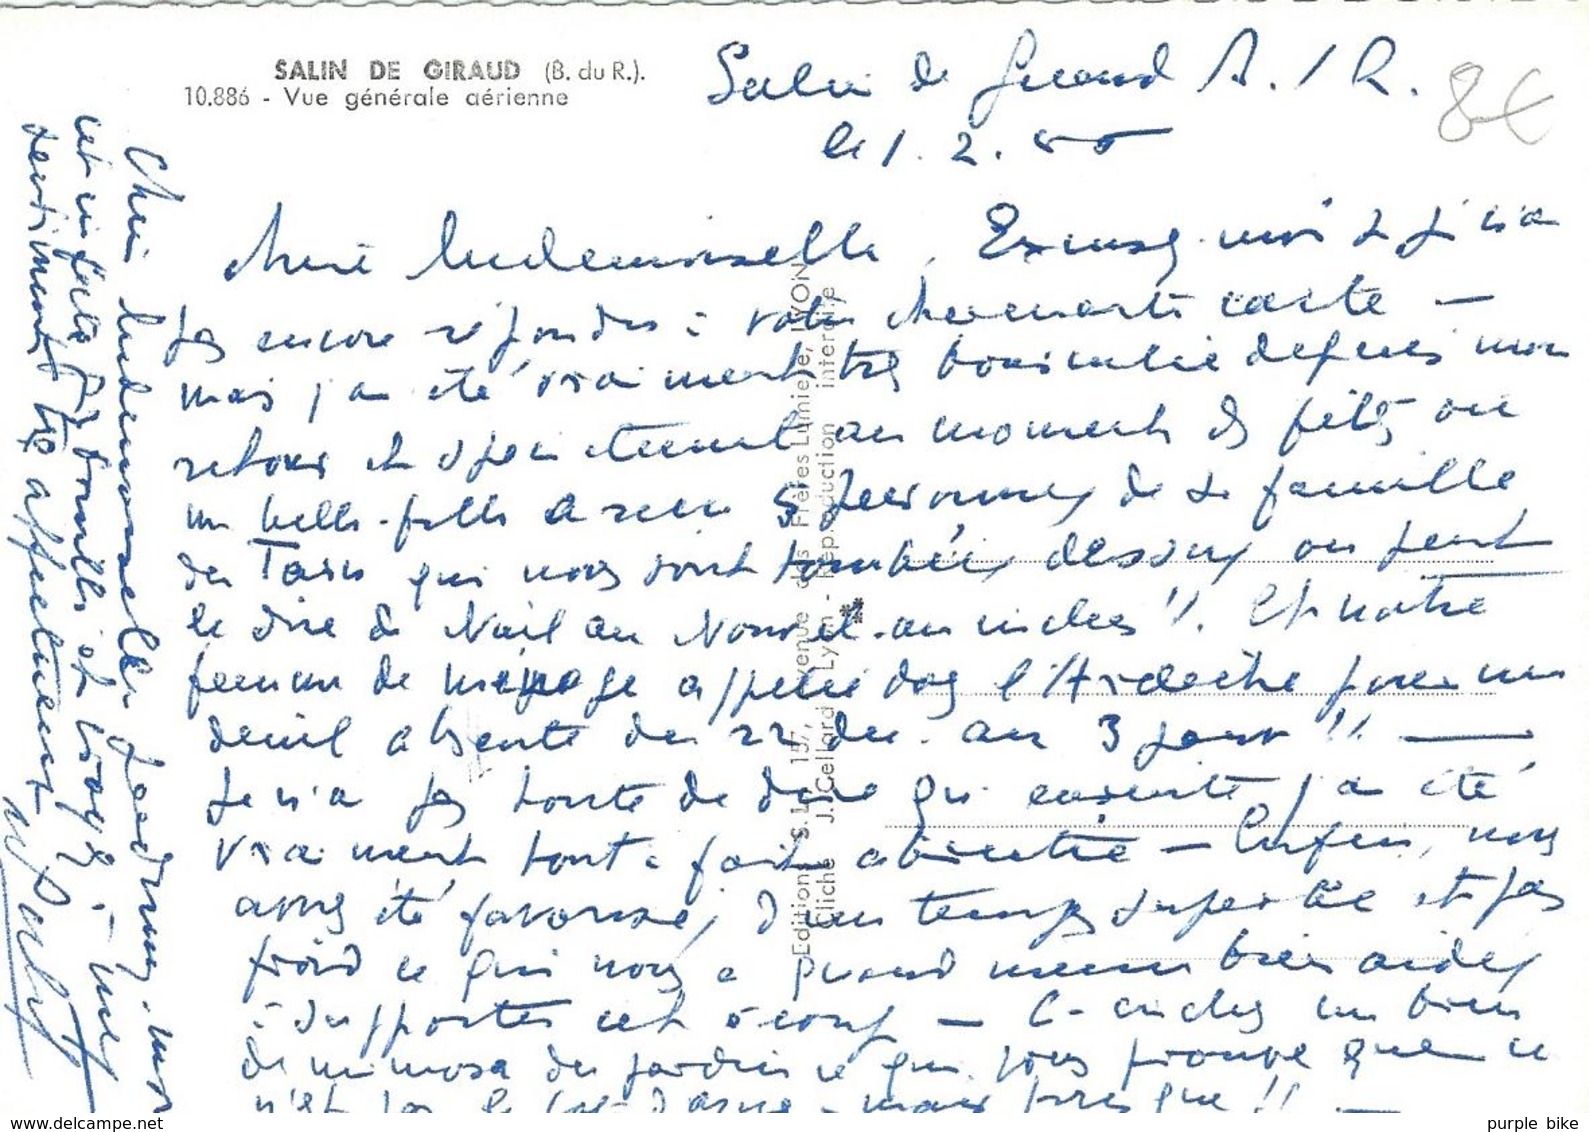 SALIN DE GIRAUD (B. du R.).
10.886 - Vue générale aérienne
Salin de Giraud B. / R.
le 1. 2. 
8€
Chère Mademoiselle, Excusez-moi si je n'ai
pas encore répondu à votre charmante carte -
mais j'ai été vraiment très bousculée depuis mon
retour et spécialement au moment des fêtes où
ma belle-fille a reçu 5 personnes de sa famille
du Tarn qui nous sont tombées dessus on peut
le dire de Noël au Nouvel-an inclus !!. Et notre
femme de ménage appelée dans l'Ardèche pour un
deuil absente du 22 déc. au 3 janv !! —
Je n'ai pas honte de dire qu'ensuite j'ai été
vraiment tout à fait abrutie - Enfin, nous
avons été favorisé, d'un temps superbe et pas
froid ce qui nous a quand même bien aidés
à supporter cet à coup - Ci-inclus un brin
de mimosa du jardin ce qui vous prouve que ce
n'est pas la Côte d'Azur - mais presque !! -
Chère Mademoiselle pardonnez-moi
cet et croyez à mes
sentiments très affectueux
Editions S.L. 157, avenue des Frères Lumière, LYON
Cliché J. Cellard Lyon - Reproduction interdite
purple bike